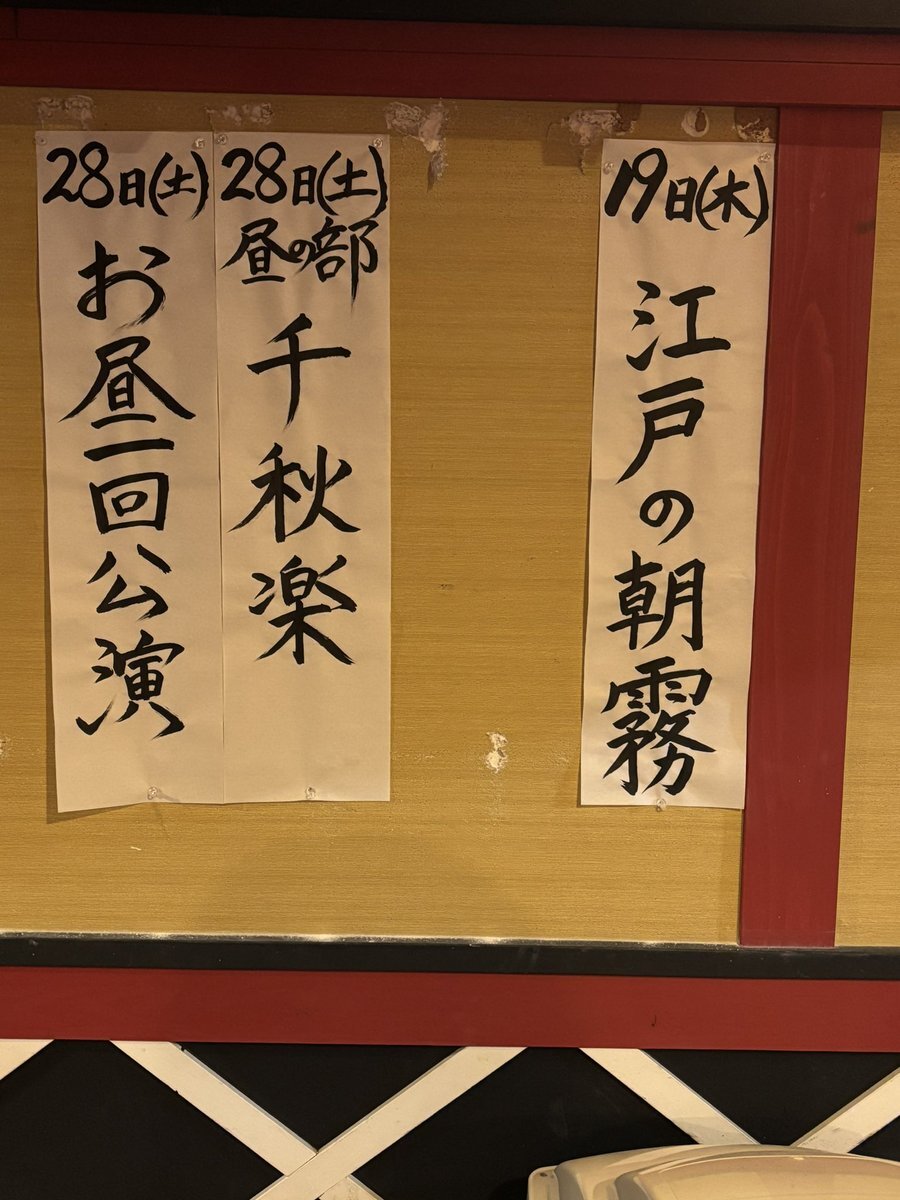 19日(木)
江戸の朝霧
28日(土)
昼の部
千秋楽
28日(土)
お昼一回公演